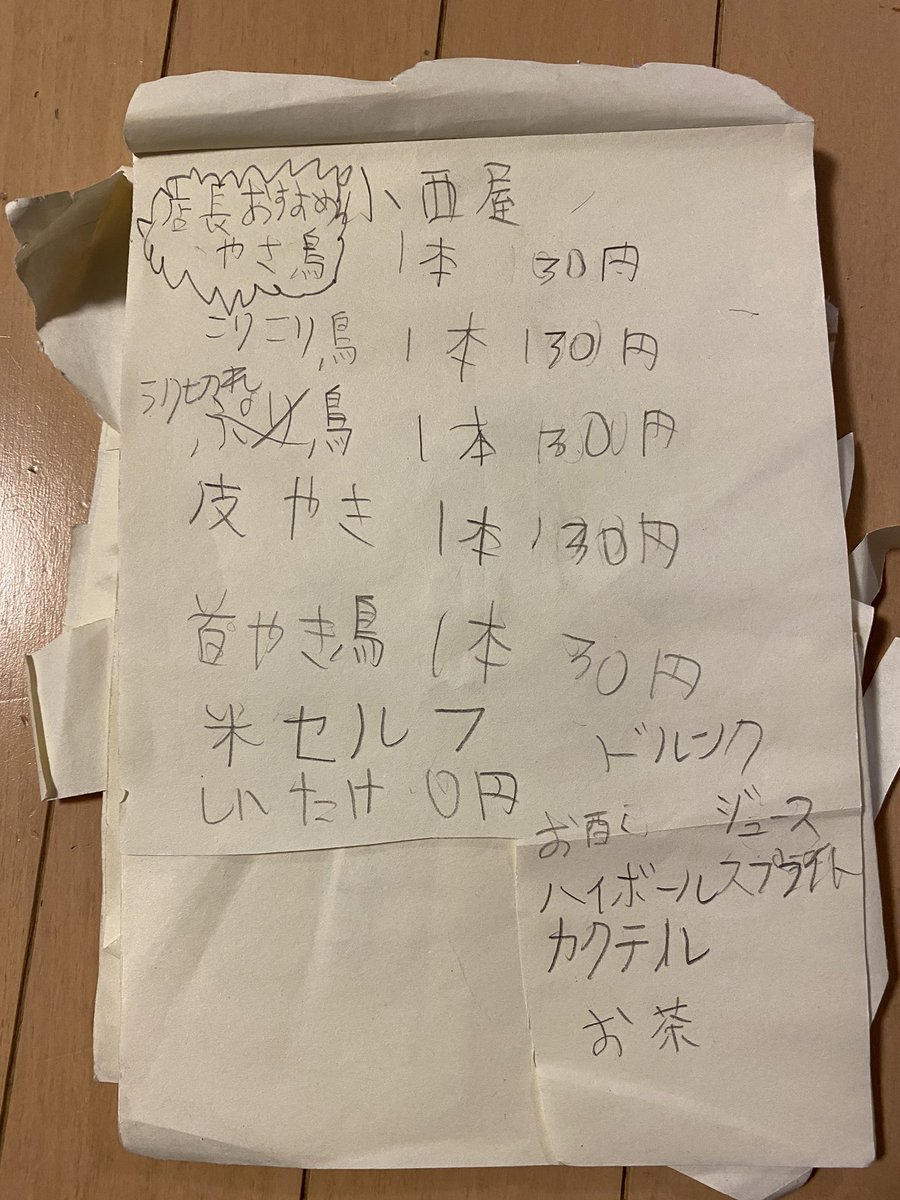 店長おすすめ 小西屋
やさ鳥 1本 130円
こりこり鳥 1本 130円
うり切れ
鳥 1本 1300円
皮やき 1本 130円
首やき鳥 1本 30円
米セルフ
ドルンク
しいたけ 0円
ジュース
ハイボール スプライト
カクテル
お茶